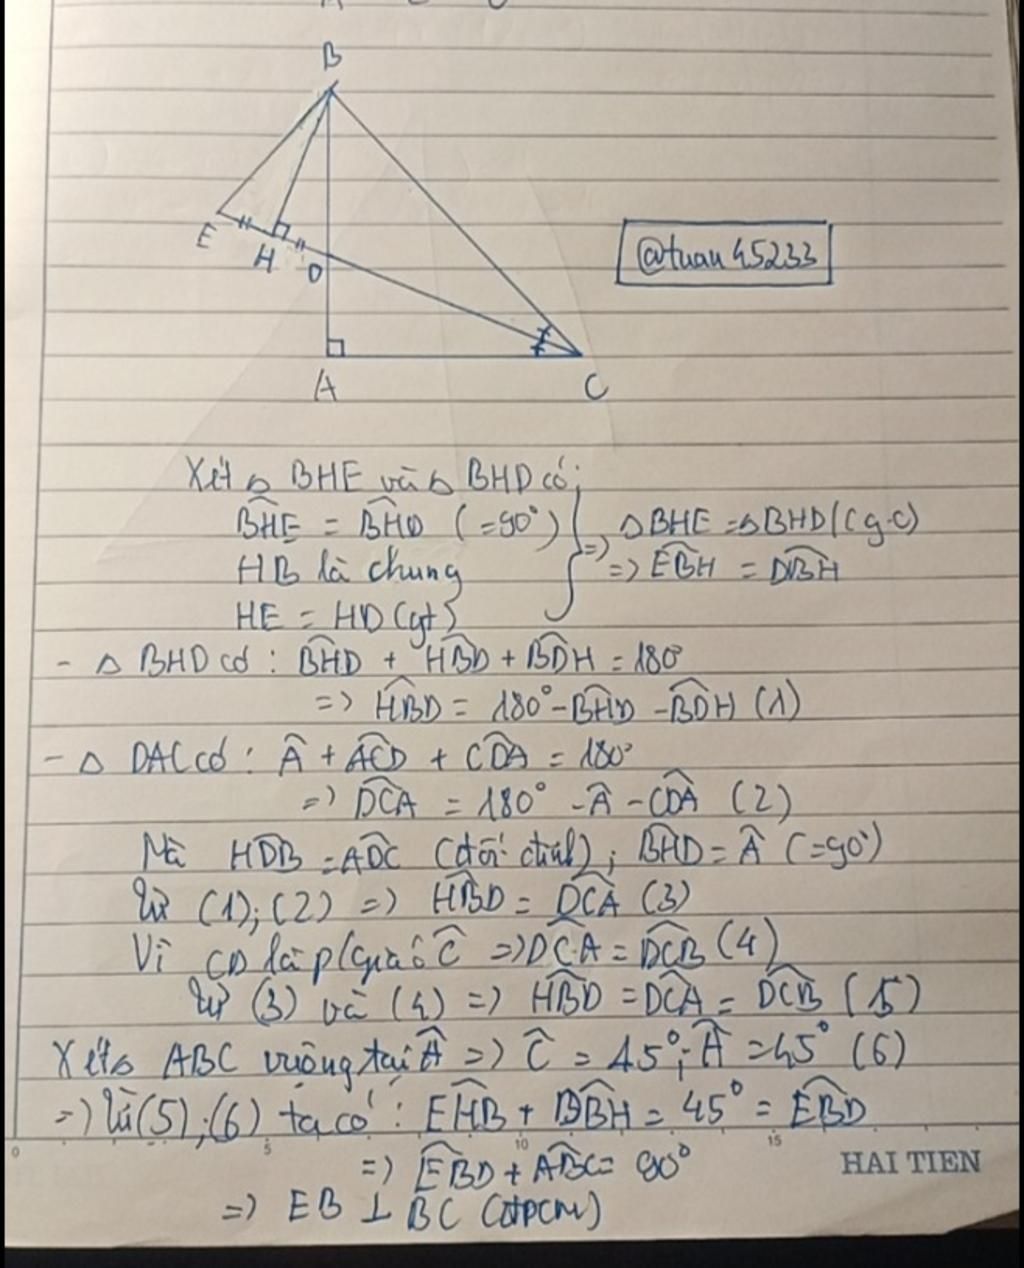 B
E
H
D
@tuan45233
A
C
Xét △ BHE và △ BHD có:
BHE = BHD (=90°)
HB là chung
HE = HD (gt)
=> △BHE = △BHD (c.g.c)
=> EBH = DBH
- △ BHD có: BHD + HBD + BDH = 180°
=> HBD = 180° - BHD - BDH (1)
- △ DAC có: Â + ACD + CDA = 180°
=> DCA = 180° - Â - CDA (2)
Mà HDB = ADC (đối đỉnh); BHD = Â (=90°)
Từ (1);(2) => HBD = DCA (3)
Vì CD là p/giác Ĉ => DCA = DCB (4)
Từ (3) và (4) => HBD = DCA = DCB (5)
Xét △ ABC vuông tại Â => Ĉ = 45°; Â = 45° (6)
=> Từ (5);(6) ta có: EHB + DBH = 45° = EBD
=> EBD + ABC = 90°
=> EB ⊥ BC (đpcm)
0 5 10 15
HAI TIEN